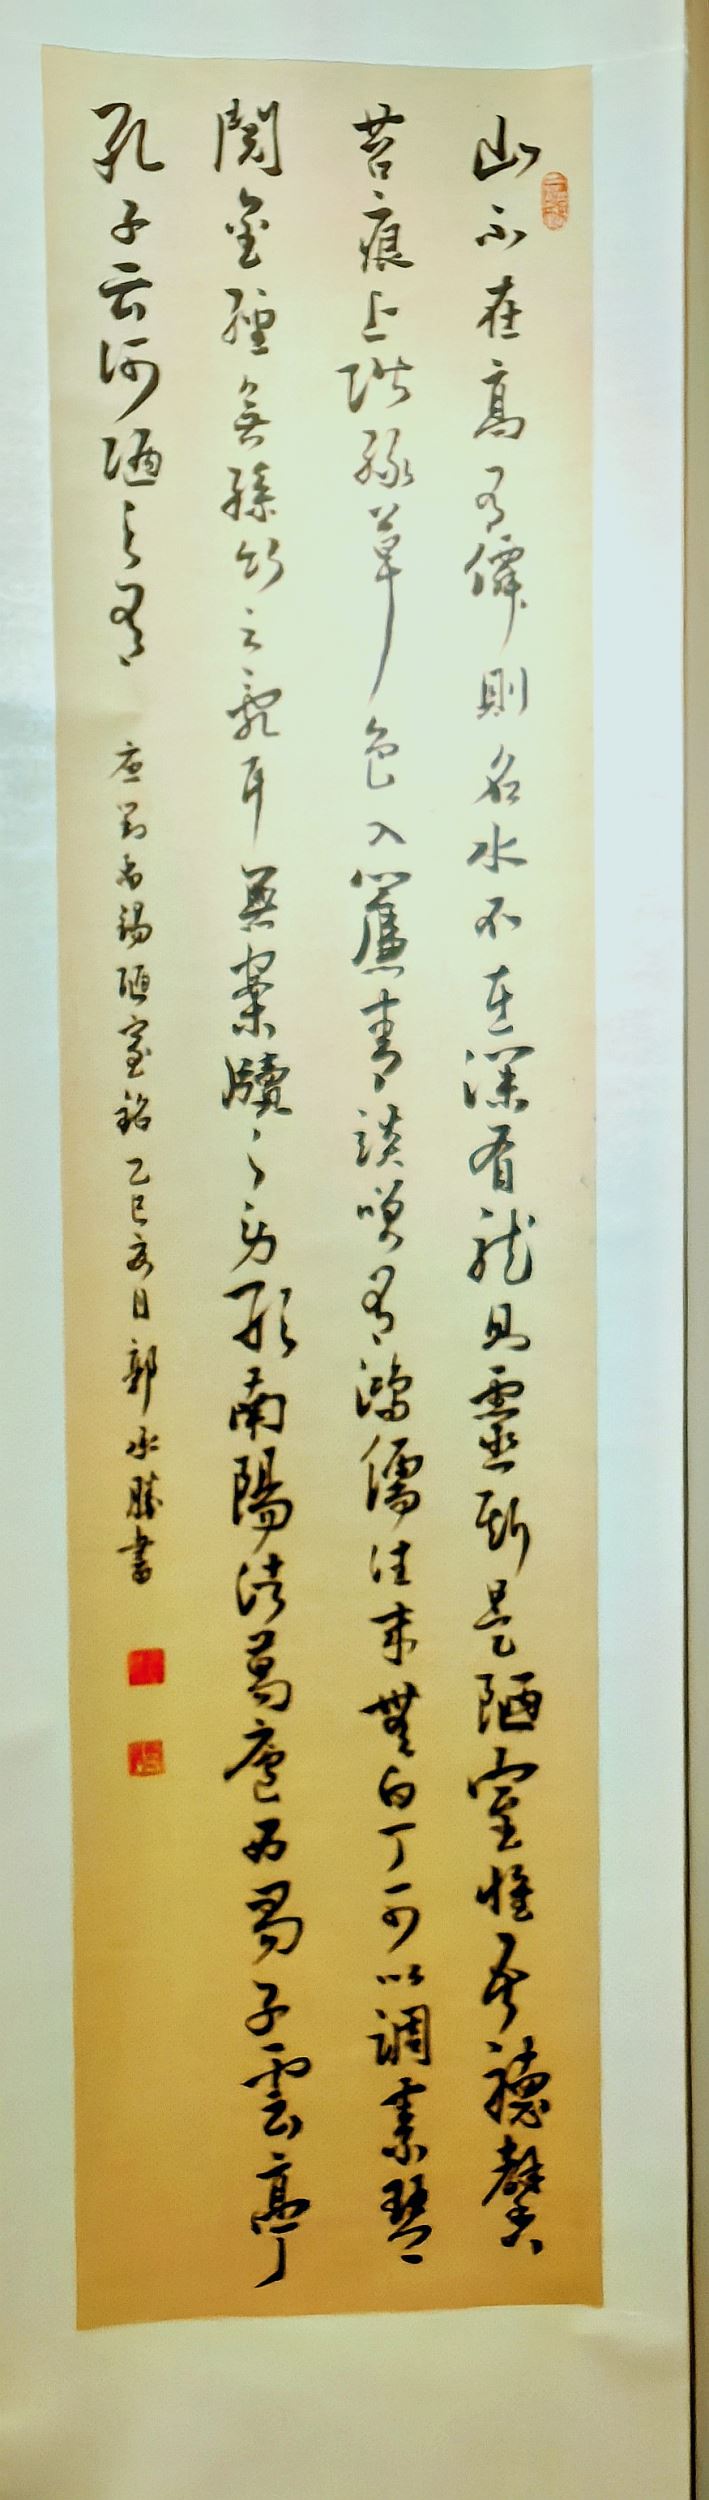 山不在高有僊則名水不在深有龍則靈斯是陋室惟吾德馨
苔痕上階綠草色入簾青談笑有鴻儒往來無白丁可以調素琴
閱金經無絲竹之亂耳無案牘之勞形南陽諸葛廬西蜀子雲亭
孔子云何陋之有
劉禹錫陋室銘乙巳 日郭 勝書